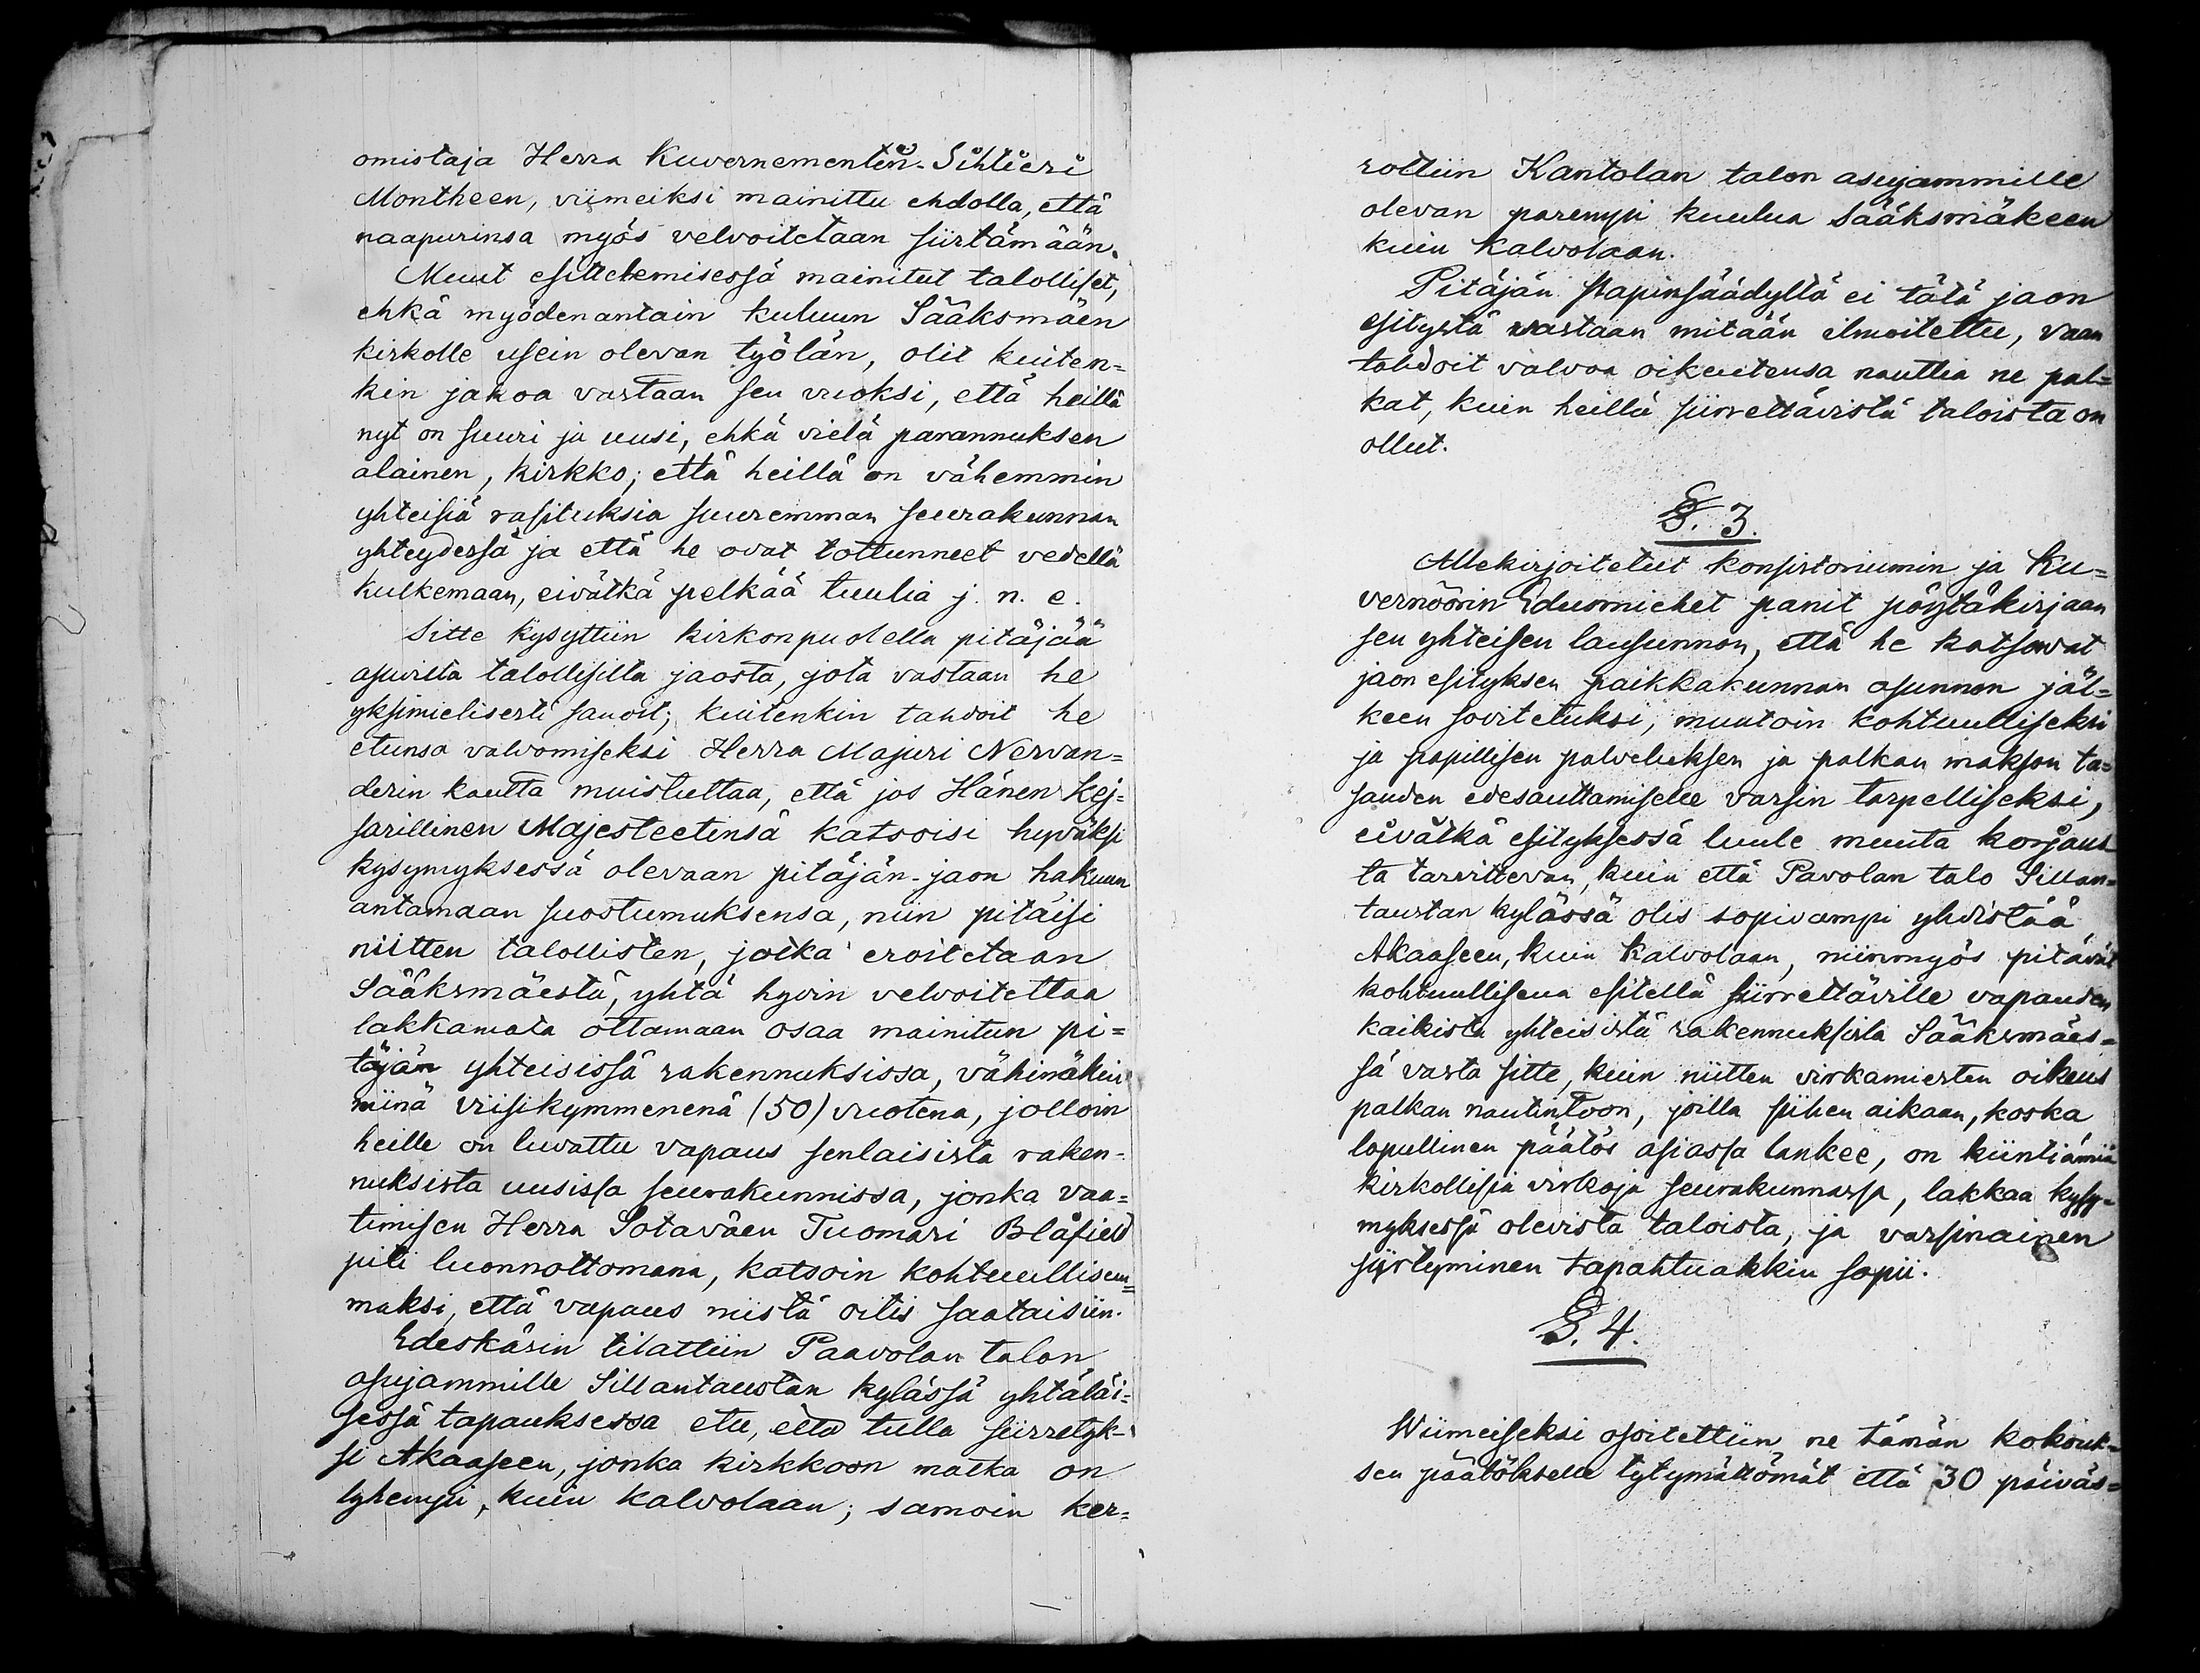 omistaja Herra Kuvernementin-Sihtieri
Montheen, viimeiksi mainittu ehdolla, että
naapurinsa myös velvoitetaan siirtämään.
Muut esittelemisessä mainitut talolliset,
ehkä myödenantain kuluun Sääksmäen
kirkolle usein olevan työlän, olit kuiten=
kin jakoa vastaan sen vuoksi, että heillä
nyt on suuri ja uusi, ehkä vielä parannuksen
alainen, kirkko; että heillä on vähemmin
yhteisiä rasituksia suuremman seurakunnan
yhteydessä ja että he ovat tottunneet vedellä
kulkemaan, eivätkä pelkää tuulia j. n. e.
Sitte kysyttiin kirkonpuolella pitäjää
asuvilta talollisilta jaosta, jota vastaan he
yksimielisesti sanoit; kuitenkin tahdoit he
etunsa valvomiseksi Herra Majuri Nervan=
derin kautta muistuttaa, että jos Hänen Kej=
sarillinen Majesteetinsä katsoisi hyväksi
kysymyksessä olevaan pitäjän-jaon hakuun
antamaan suostumuksensa, niin pitäisi
niitten talollisten, jotka eroitetaan
Sääksmäestä, yhtä hyvin velvoitettaa
lakkamata ottamaan osaa mainitun pi=
täjän yhteisissä rakennuksissa, vähimäkin
niinä viisikymmenenä (50) vuotena, jolloin
heille on luvattu vapaus senlaisista raken=
nuksista uusissa seurakunnissa, jonka vaa=
timisen Herra Sotaväen Tuomari Blåfield
piti luonnottomana, katsoin kohtuullisem=
maksi, että vapaus niistä oitis saataisiin.
Edeskäsin tilattiin Paavolan talon
asujammille Sillantaustan kylässä yhtäläi=
sessä tapauksessa etu, että tulla siirretyk-
si Akaaseen, jonka kirkkoon matka on
lyhempi, kuin Kalvolaan; samoin ker=
rottiin Kantolan talon asujammille
olevan parempi kuulua Sääksmäkeen
kuin Kalvolaan.
Pitäjän Papinsäädyltä ei tätä jaon
esitystä vastaan mitään ilmoitettu, vaan
tahdoit valvoa oikeutensa nauttia ne pal=
kat, kuin heillä siirrettävistä taloista on
ollut.
§. 3.
Allekirjoitetut konsistoriumin ja Ku=
vernöörin Edusmiehet panit pöytäkirjaan
sen yhteisen lausunnon, että he katsovat
jaon esityksen paikkakunnan asunnon jäl=
keen sovitetuksi, muutoin kohtuulliseksi
ja papillisen palveluksen ja palkan makson ta=
sauden edesauttamiselle varsin tarpelliseksi,
eivätkä esityksessä luule muuta korjaus-
ta tarvittevan, kuin että Pavolan talo Sillan=
taustan kylässä olis sopivampi yhdistää
Akaaseen, kuin Kalvolaan, niinmyös pitävät
kohtuullisena esitellä siirrettäville vapauden
kaikista yhteisistä rakennuksista Sääksmäes=
sä vasta sitte, kuin niitten virkamiesten oikeus
palkan nautintoon, joilla siihen aikaan, koska
lopullinen päätös asiassa lankee, on kiintiämiä
kirkollisia virkoja seurakunnassa, lakkaa kysy=
myksessä olevista taloista, ja varsinainen
siirtyminen tapahtuakkin sopii.
§. 4.
Wiimeiseksi osoitettiin ne tämän kokouk=
sen päätökselle tytymättömät että 30 päiväs=